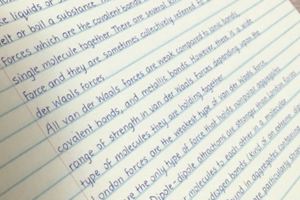 se liquids or
elt or boil a substance
Forces which are the covalent bonds
single molecule together. There are several kinds
Force and they are sometimes collectively referred to
der Waals forces.
All van der Waals forces are weak compared to ionic bonds,
covalent bonds, and metallic bonds. However, there is a wide
range of strength in van der Waals forces depending upon the
type of molecules they are holding together.
London forces are the weakest type of van der Waals force
are the only type of force that holds nonpolar
Dipole-dipole attractions are stronger than London forces
molecules to each other in a molecule.
hydrogen bonds
found in aggregates containing
are particularly strong